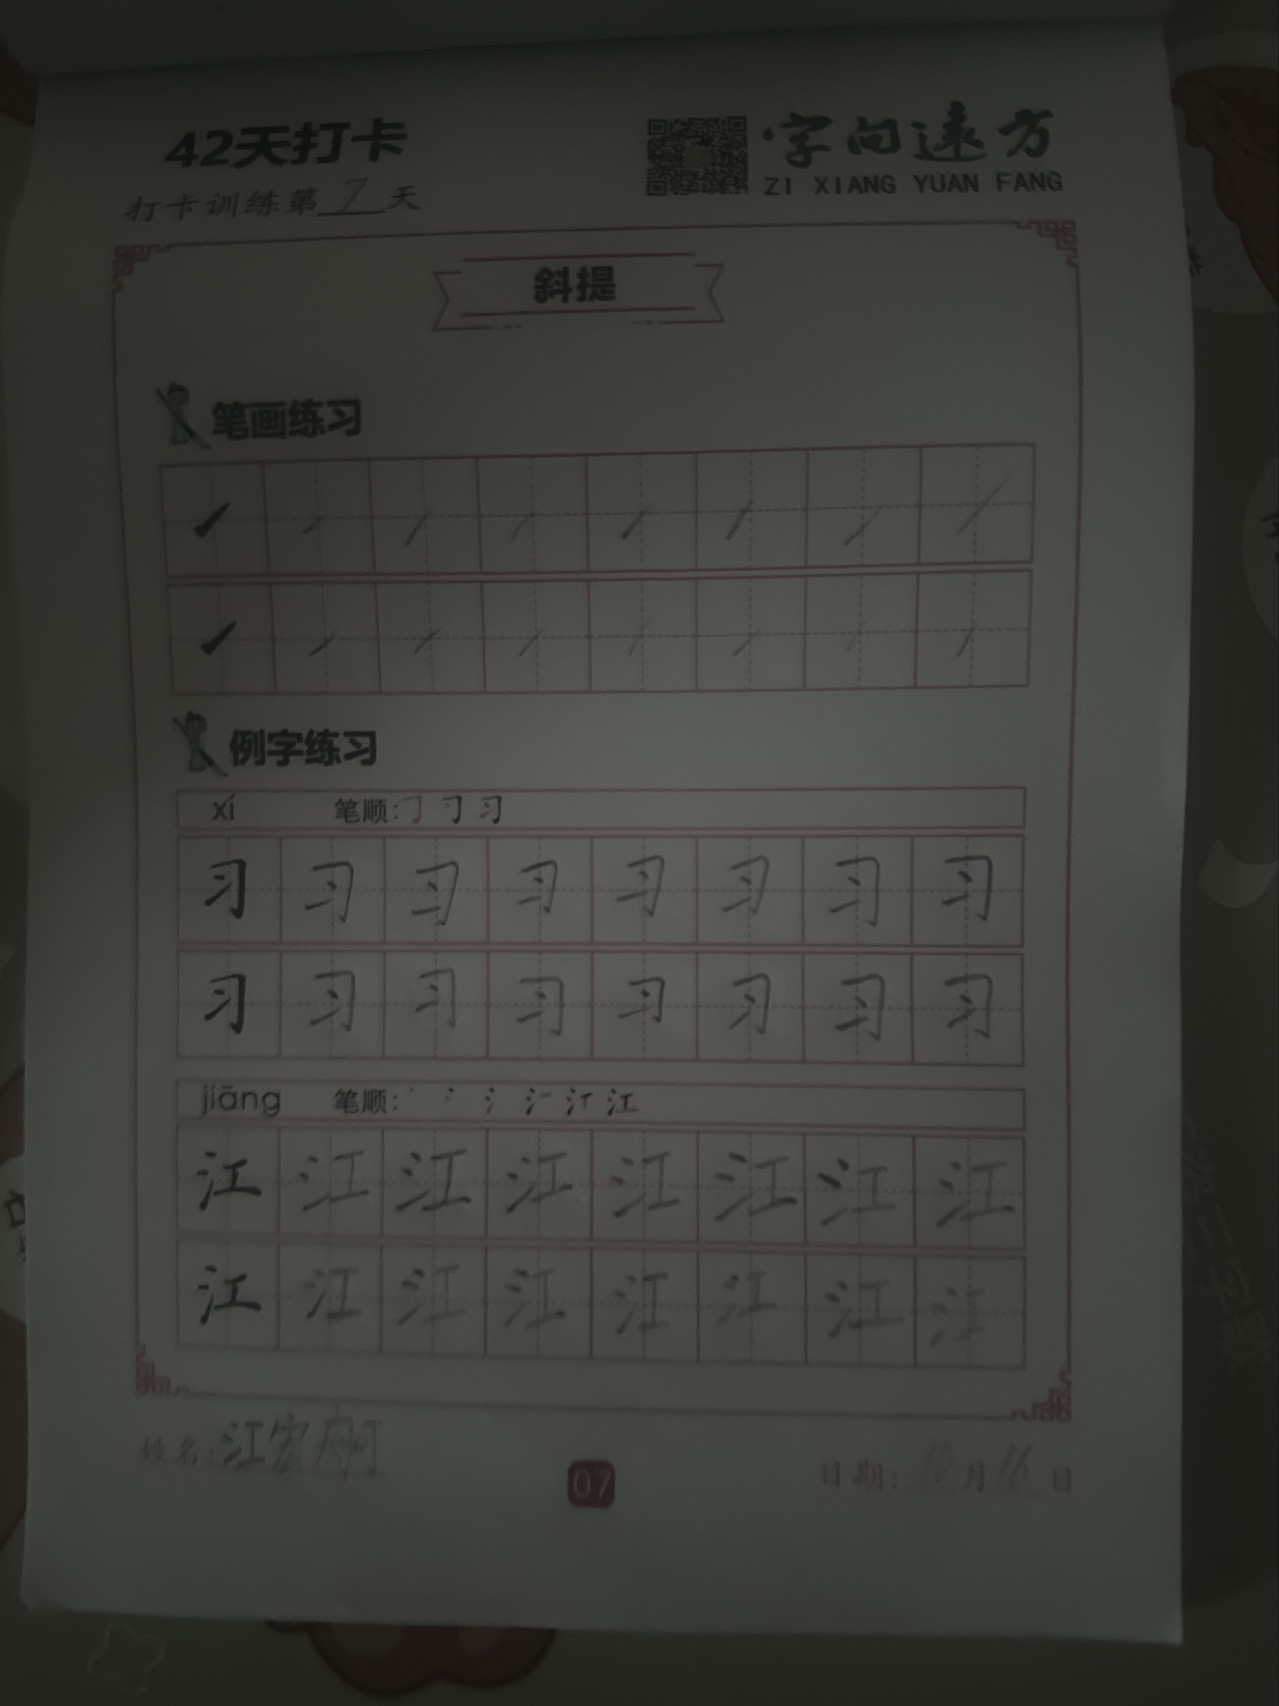 42天打卡
字向远方
ZI XIANG YUAN FANG
打卡训练第7天
斜提
笔画练习
例字练习
xí 笔顺:
习 习 习 习 习 习 习 习
习 习 习 习 习 习 习 习
jiāng 笔顺:
江 江 江 江 江 江 江 江
江 江 江 江 江 江 江 江
姓名:江宏
07
日期:10月16日